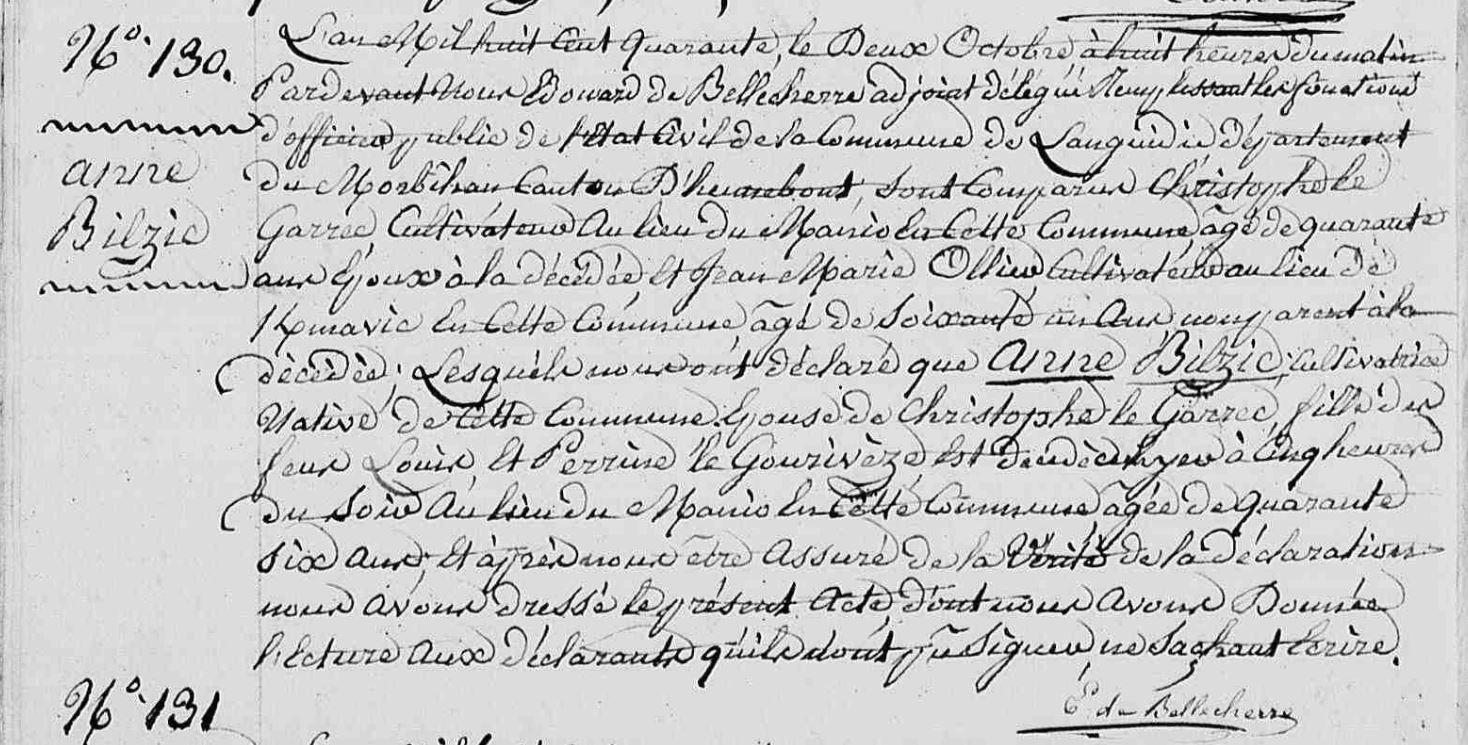 N.° 130.
anne
Bilzic
L'an Mil huit Cent quarante, le Deux Octobre à huit heures du matin
Pardevant Nous Edouard de Bellecherre adjoint délégué Remplissant les fonctions
d'officier public de l'Etat Civil de la Commune de Languidic département
du Morbihan Canton D'hennebont, sont Comparus Christophe le
Garrec Cultivateur Au lieu du Manio En Cette Commune âgé de quarante
ans Epoux à la décédée Et Jean Marie Ollier Cultivateur au lieu de
Kmavic En Cette Commune âgé de Soixante un Ans non parent à la
décédée, Lesquels nous ont déclaré que Anne Bilzic, Cultivatrice
Native de Cette Commune Epouse de Christophe le Garrec, fille des
feus Louis Et Perrine le Gourivèze, Est décédée hyer à Cinq heures
du Soir Au lieu du Manio En Cette Commune âgée de quarante
Six Ans, Et après nous être Assuré de la Vérité de la déclaration
nous avons dressé le présent Acte dont nous avons Donnée
lecture aux déclarants qu'ils n'ont pu Signer ne Sachant Ecrire.
E. de Bellecherre
N.° 131